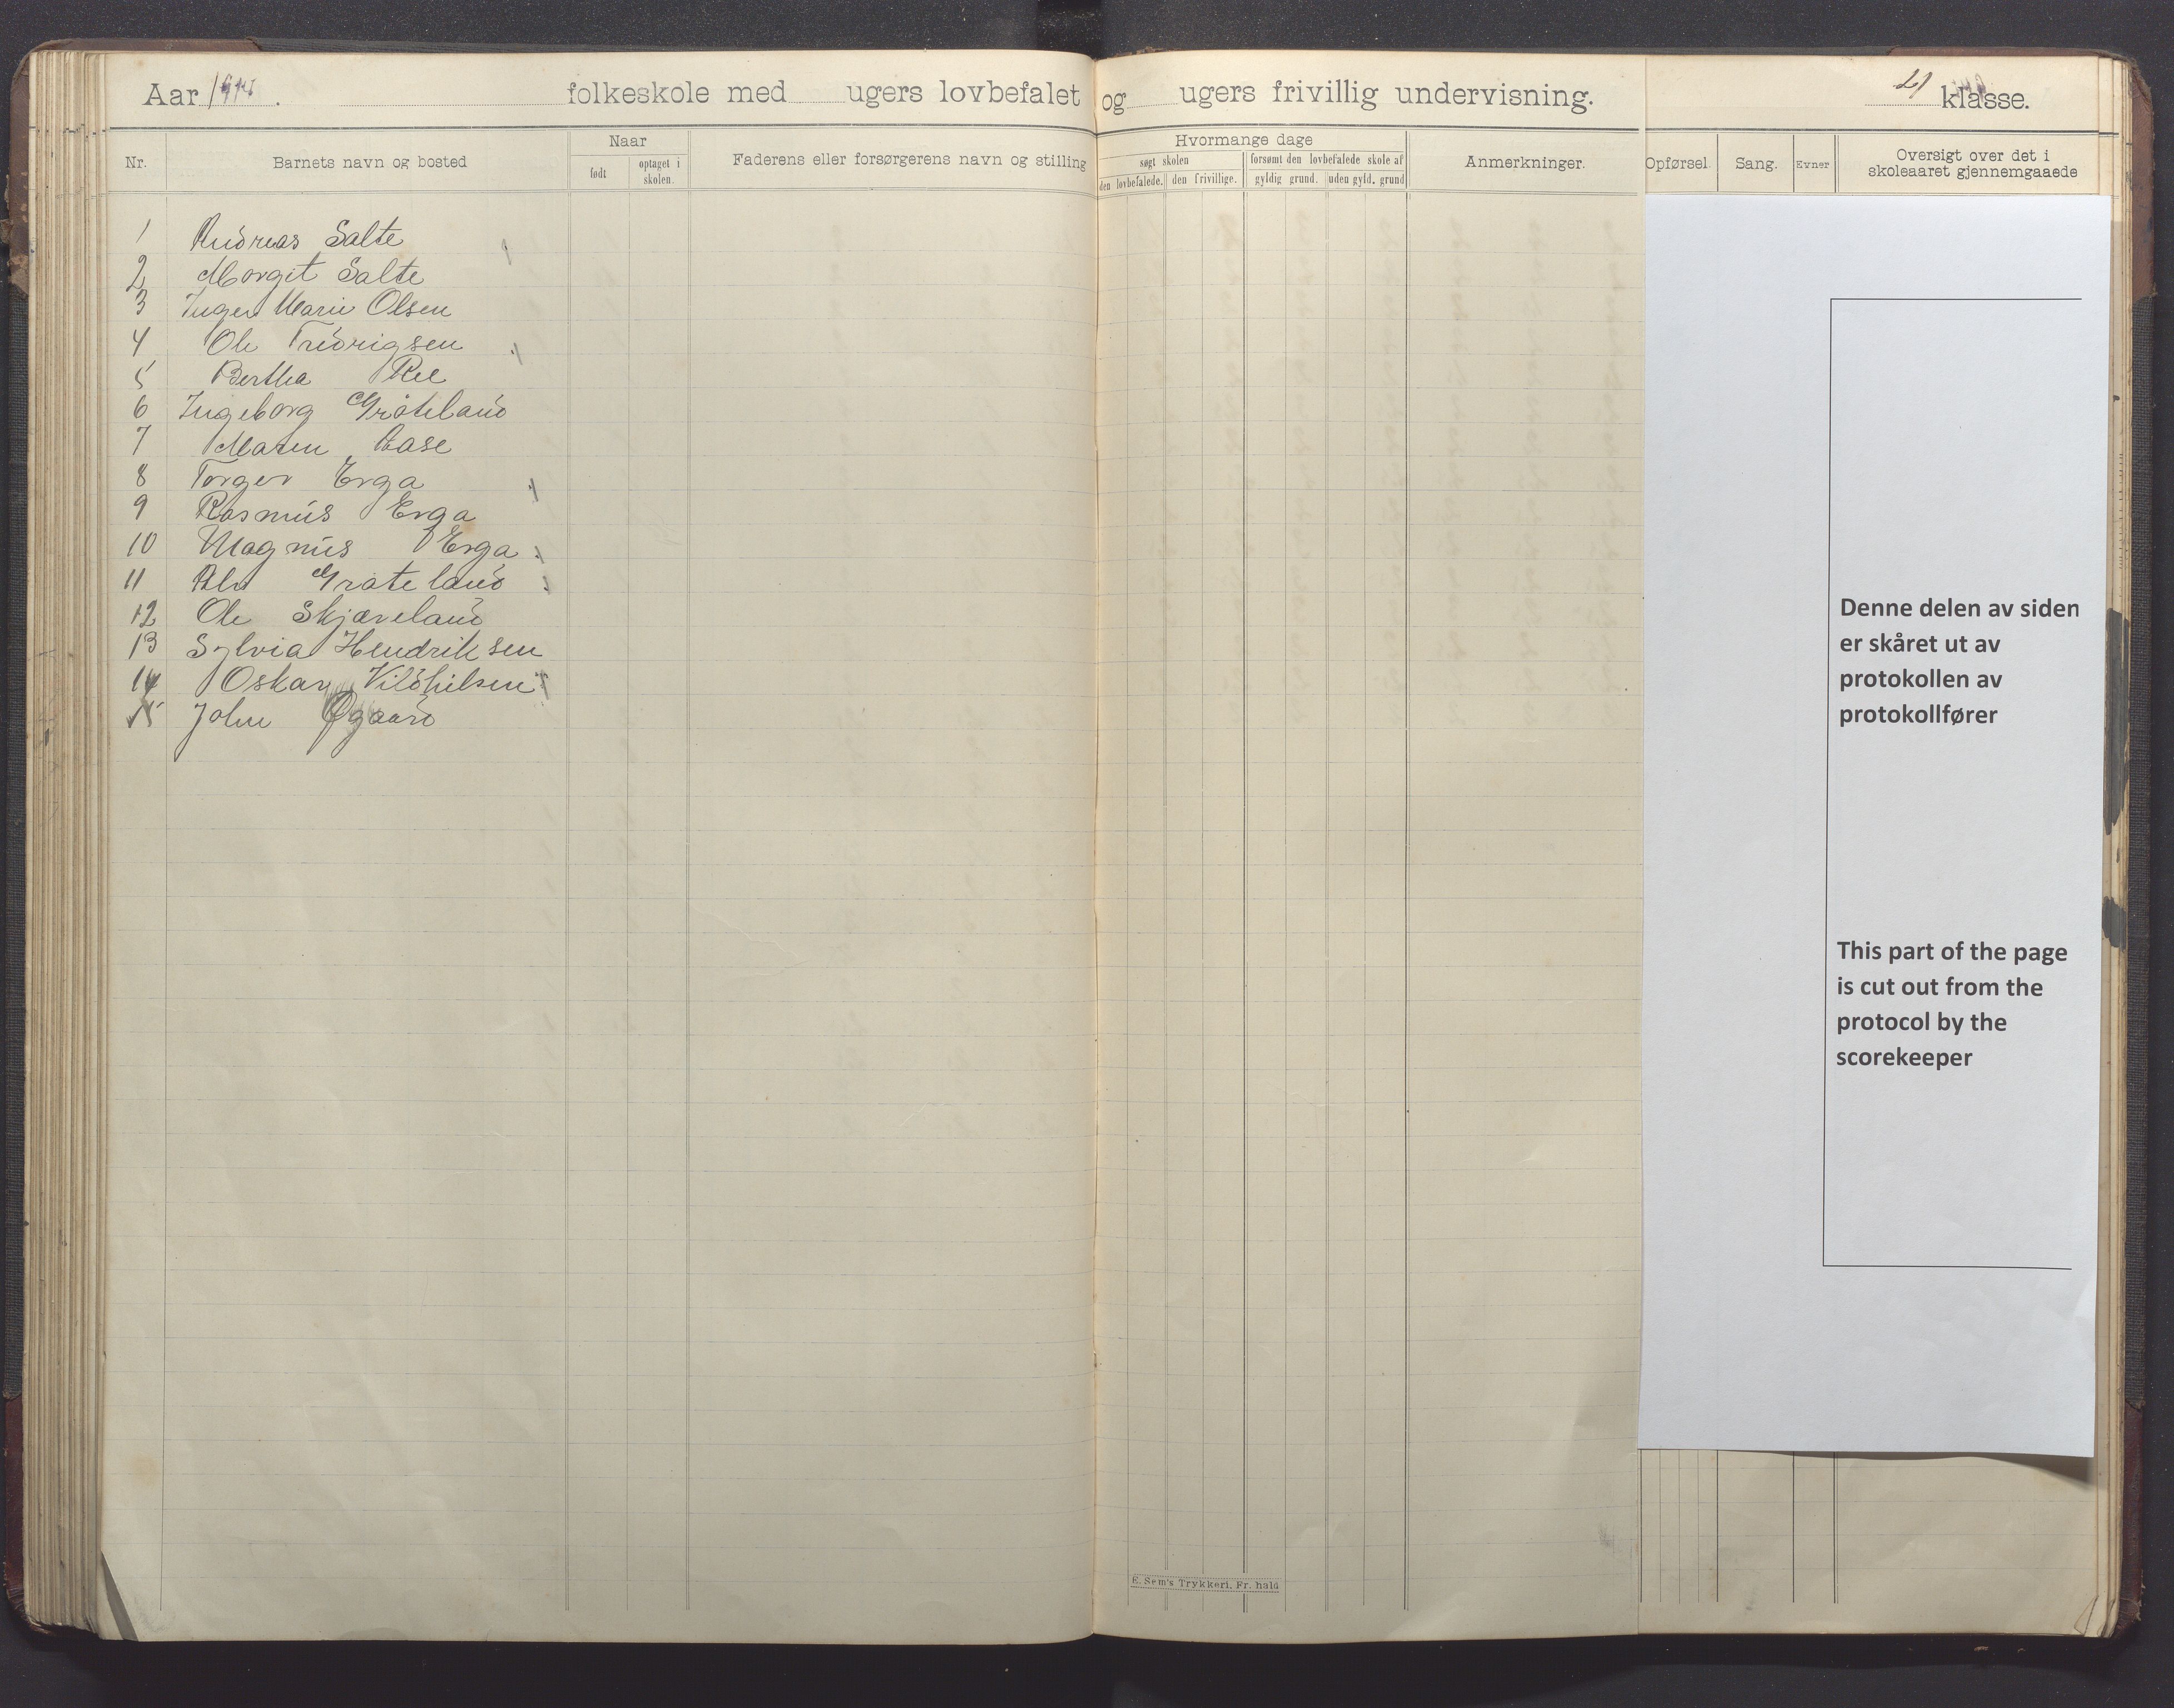 Aar
folkeskole med ugers lovbefalet og ugers frivillig undervisning.
klasse.
Nr.
Barnets navn og bosted
Naar
født
optaget i skolen.
Faderens eller forsørgerens navn og stilling
Hvormange dage
søgt skolen
den lovbefalede.
den frivillige.
forsømt den lovbefalede skole af
gyldig grund.
uden gyld. grund
Anmerkninger.
Opførsel.
Sang.
Evner
Oversigt over det i
skoleaaret gjennemgaaede
1 Andreas Salte
2 Margit Salte
3 Inger Marie Olsen
4 Ole Fredrigsen
5 Bertha Ree
6 Ingeborg Gråteland
7 Maren Aase
8 Torger Erga
9 Rasmus Erga
10 Magnus Erga
11 Gråteland
12 Ole Skjæveland
13 Sylvia Hendriksen
14 Oskar Vildhilsen
15 John Øgaard
Denne delen av siden
er skåret ut av
protokollen av
protokollfører
This part of the page
is cut out from the
protocol by the
scorekeeper
E. Sem's Trykkeri, Fr. hald